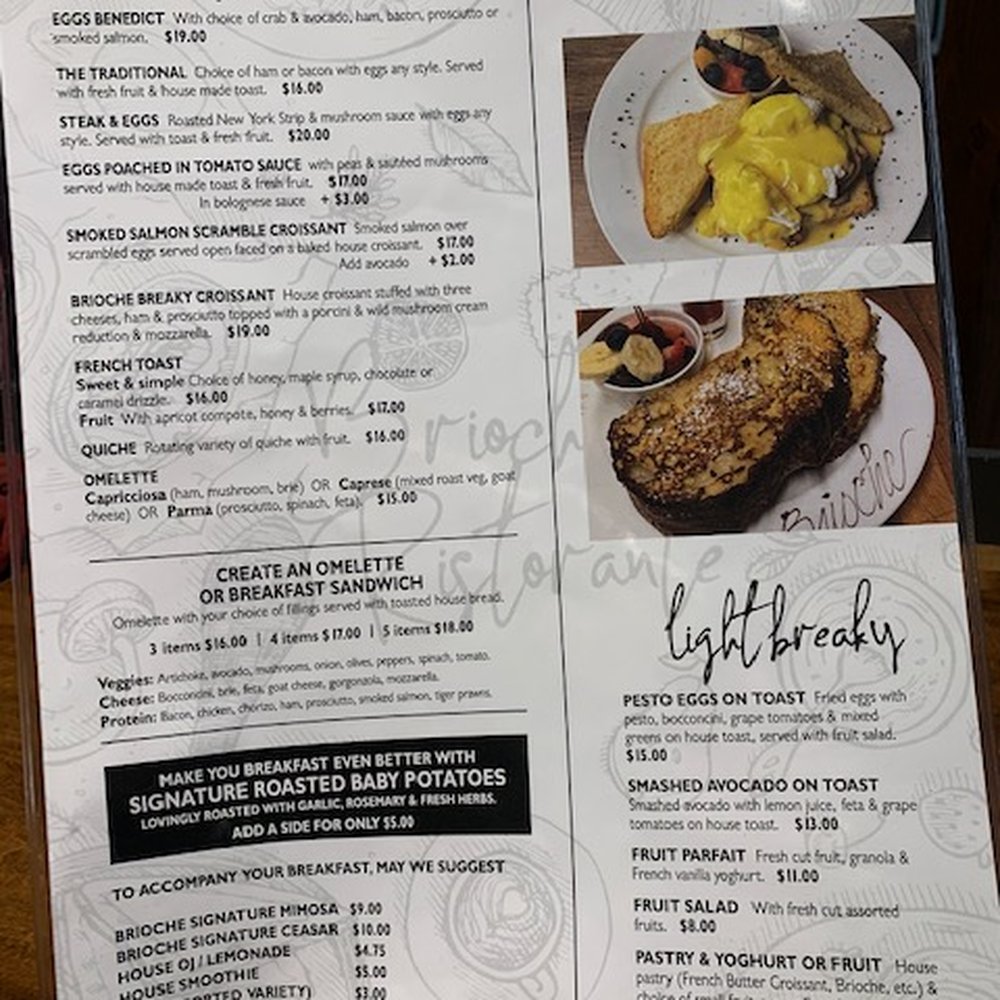 EGGS BENEDICT With choice of crab & avocado, ham, bacon, prosciutto or
smoked salmon. $19.00
THE TRADITIONAL Choice of ham or bacon with eggs any style. Served
with fresh fruit & house made toast. $16.00
STEAK & EGGS Roasted New York Strip & mushroom sauce with eggs any
style. Served with toast & fresh fruit. $20.00
EGGS POACHED IN TOMATO SAUCE with peas & sautéed mushrooms
served with house made toast & fresh fruit. $17.00
In bolognese sauce + $3.00
SMOKED SALMON SCRAMBLE CROISSANT Smoked salmon over
scrambled eggs served open faced on a baked house croissant. $17.00
Add avocado + $2.00
BRIOCHE BREAKY CROISSANT House croissant stuffed with three
cheeses, ham & prosciutto topped with a porcini & wild mushroom cream
reduction & mozzarella. $19.00
FRENCH TOAST
Sweet & simple Choice of honey, maple syrup, chocolate or
caramel drizzle. $16.00
Fruit With apricot compote, honey & berries. $17.00
QUICHE Rotating variety of quiche with fruit. $16.00
OMELETTE
Capricciosa (ham, mushroom, brie) OR Caprese (mixed roast veg, goat
cheese) OR Parma (prosciutto, spinach, feta). $15.00
CREATE AN OMELETTE
OR BREAKFAST SANDWICH
Omelette with your choice of fillings served with toasted house bread.
3 items $16.00 | 4 items $17.00 | 5 items $18.00
Veggies: Artichoke, avocado, mushrooms, onion, olives, peppers, spinach, tomato.
Cheese: Bocconcini, brie, feta, goat cheese, gorgonzola, mozzarella.
Protein: Bacon, chicken, chorizo, ham, prosciutto, smoked salmon, tiger prawns.
MAKE YOU BREAKFAST EVEN BETTER WITH
SIGNATURE ROASTED BABY POTATOES
LOVINGLY ROASTED WITH GARLIC, ROSEMARY & FRESH HERBS.
ADD A SIDE FOR ONLY $5.00
TO ACCOMPANY YOUR BREAKFAST, MAY WE SUGGEST
BRIOCHE SIGNATURE MIMOSA $9.00
BRIOCHE SIGNATURE CEASAR $10.00
HOUSE OJ / LEMONADE $4.75
HOUSE SMOOTHIE $5.00
VARIETY) $3.00
Brioche
Ristorante
Brioche
light breaky
PESTO EGGS ON TOAST Fried eggs with
pesto, bocconcini, grape tomatoes & mixed
greens on house toast, served with fruit salad.
$15.00
SMASHED AVOCADO ON TOAST
Smashed avocado with lemon juice, feta & grape
tomatoes on house toast. $13.00
FRUIT PARFAIT Fresh cut fruit, granola &
French vanilla yoghurt. $11.00
FRUIT SALAD With fresh cut assorted
fruits. $8.00
PASTRY & YOGHURT OR FRUIT House
pastry (French Butter Croissant, Brioche, etc.) &
choice of small fruit